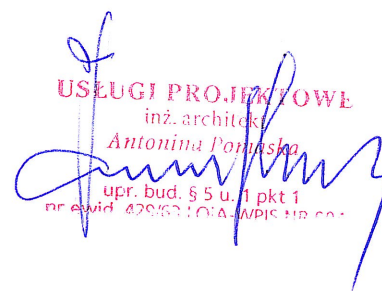 USŁUGI PROJEKTOWE
inż. architekt
Antonina
upr. bud. § 5 u. 1 pkt 1
nr ewid. WPIS NR